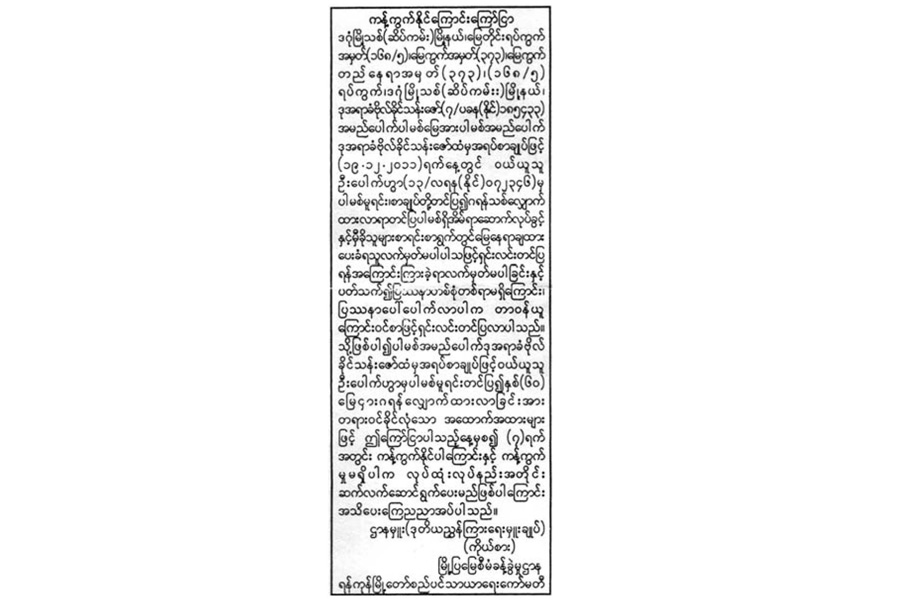 ကန့်ကွက်နိုင်ကြောင်းကြော်ငြာ
ဒဂုံမြို့သစ်(ဆိပ်ကမ်း)မြို့နယ်၊မြေတိုင်းရပ်ကွက်
အမှတ်(၁၆၈/၅)၊မြေကွက်အမှတ်(၃၇၃)၊မြေကွက်
တည်နေရာအမှတ်(၃၇၃)၊(၁၆၈/၅)
ရပ်ကွက်၊ဒဂုံမြို့သစ်(ဆိပ်ကမ်း)မြို့နယ်၊
ဒုအရာခံဗိုလ်ခိုင်သန်းဇော်(၇/ပခန(နိုင်)၁၈၅၄၃၃)
အမည်ပေါက်ပါမစ်မြေအားပါမစ်အမည်ပေါက်
ဒုအရာခံဗိုလ်ခိုင်သန်းဇော်ထံမှအရပ်စာချုပ်ဖြင့်
(၁၉-၁၂-၂၀၁၁)ရက်နေ့တွင် ဝယ်ယူသူ
ဦးပေါက်ဟွာ(၁၃/လရန(နိုင်)၀၇၂၃၄၆)မှ
ပါမစ်မူရင်း၊စာချုပ်တို့တင်ပြ၍ဂရန်သစ်လျှောက်
ထားလာရာတင်ပြပါမစ်ရှိအိမ်ရာဆောက်လုပ်ခွင့်
နှင့်မှီခိုသူများစာရင်းစာရွက်တွင်မြေနေရာချထား
ပေးခံရသူလက်မှတ်မပါပါသဖြင့်ရှင်းလင်းတင်ပြ
ရန်အကြောင်းကြားခဲ့ရာလက်မှတ်မပါခြင်းနှင့်
ပတ်သက်၍ပြဿနာတစ်စုံတစ်ရာမရှိကြောင်း၊
ပြဿနာပေါ်ပေါက်လာပါက တာဝန်ယူ
ကြောင်းဝင်စာဖြင့်ရှင်းလင်းတင်ပြလာပါသည်။
သို့ဖြစ်ပါ၍ပါမစ်အမည်ပေါက်ဒုအရာခံဗိုလ်
ခိုင်သန်းဇော်ထံမှအရပ်စာချုပ်ဖြင့်ဝယ်ယူသူ
ဦးပေါက်ဟွာမှပါမစ်မူရင်းတင်ပြ၍နှစ်(၆၀)
မြေငှားဂရန်လျှောက်ထားလာခြင်းအား
တရားဝင်ခိုင်လုံသော အထောက်အထားများ
ဖြင့် ဤကြော်ငြာပါသည့်နေ့မှစ၍ (၇)ရက်
အတွင်း ကန့်ကွက်နိုင်ပါကြောင်းနှင့် ကန့်ကွက်
မှုမရှိပါက လုပ်ထုံးလုပ်နည်းအတိုင်း
ဆက်လက်ဆောင်ရွက်ပေးမည်ဖြစ်ပါကြောင်း
အသိပေးကြေညာအပ်ပါသည်။
ဌာနမှူး(ဒုတိယညွှန်ကြားရေးမှူးချုပ်)
(ကိုယ်စား)
မြို့ပြမြေစီမံခန့်ခွဲမှုဌာန
ရန်ကုန်မြို့တော်စည်ပင်သာယာရေးကော်မတီ